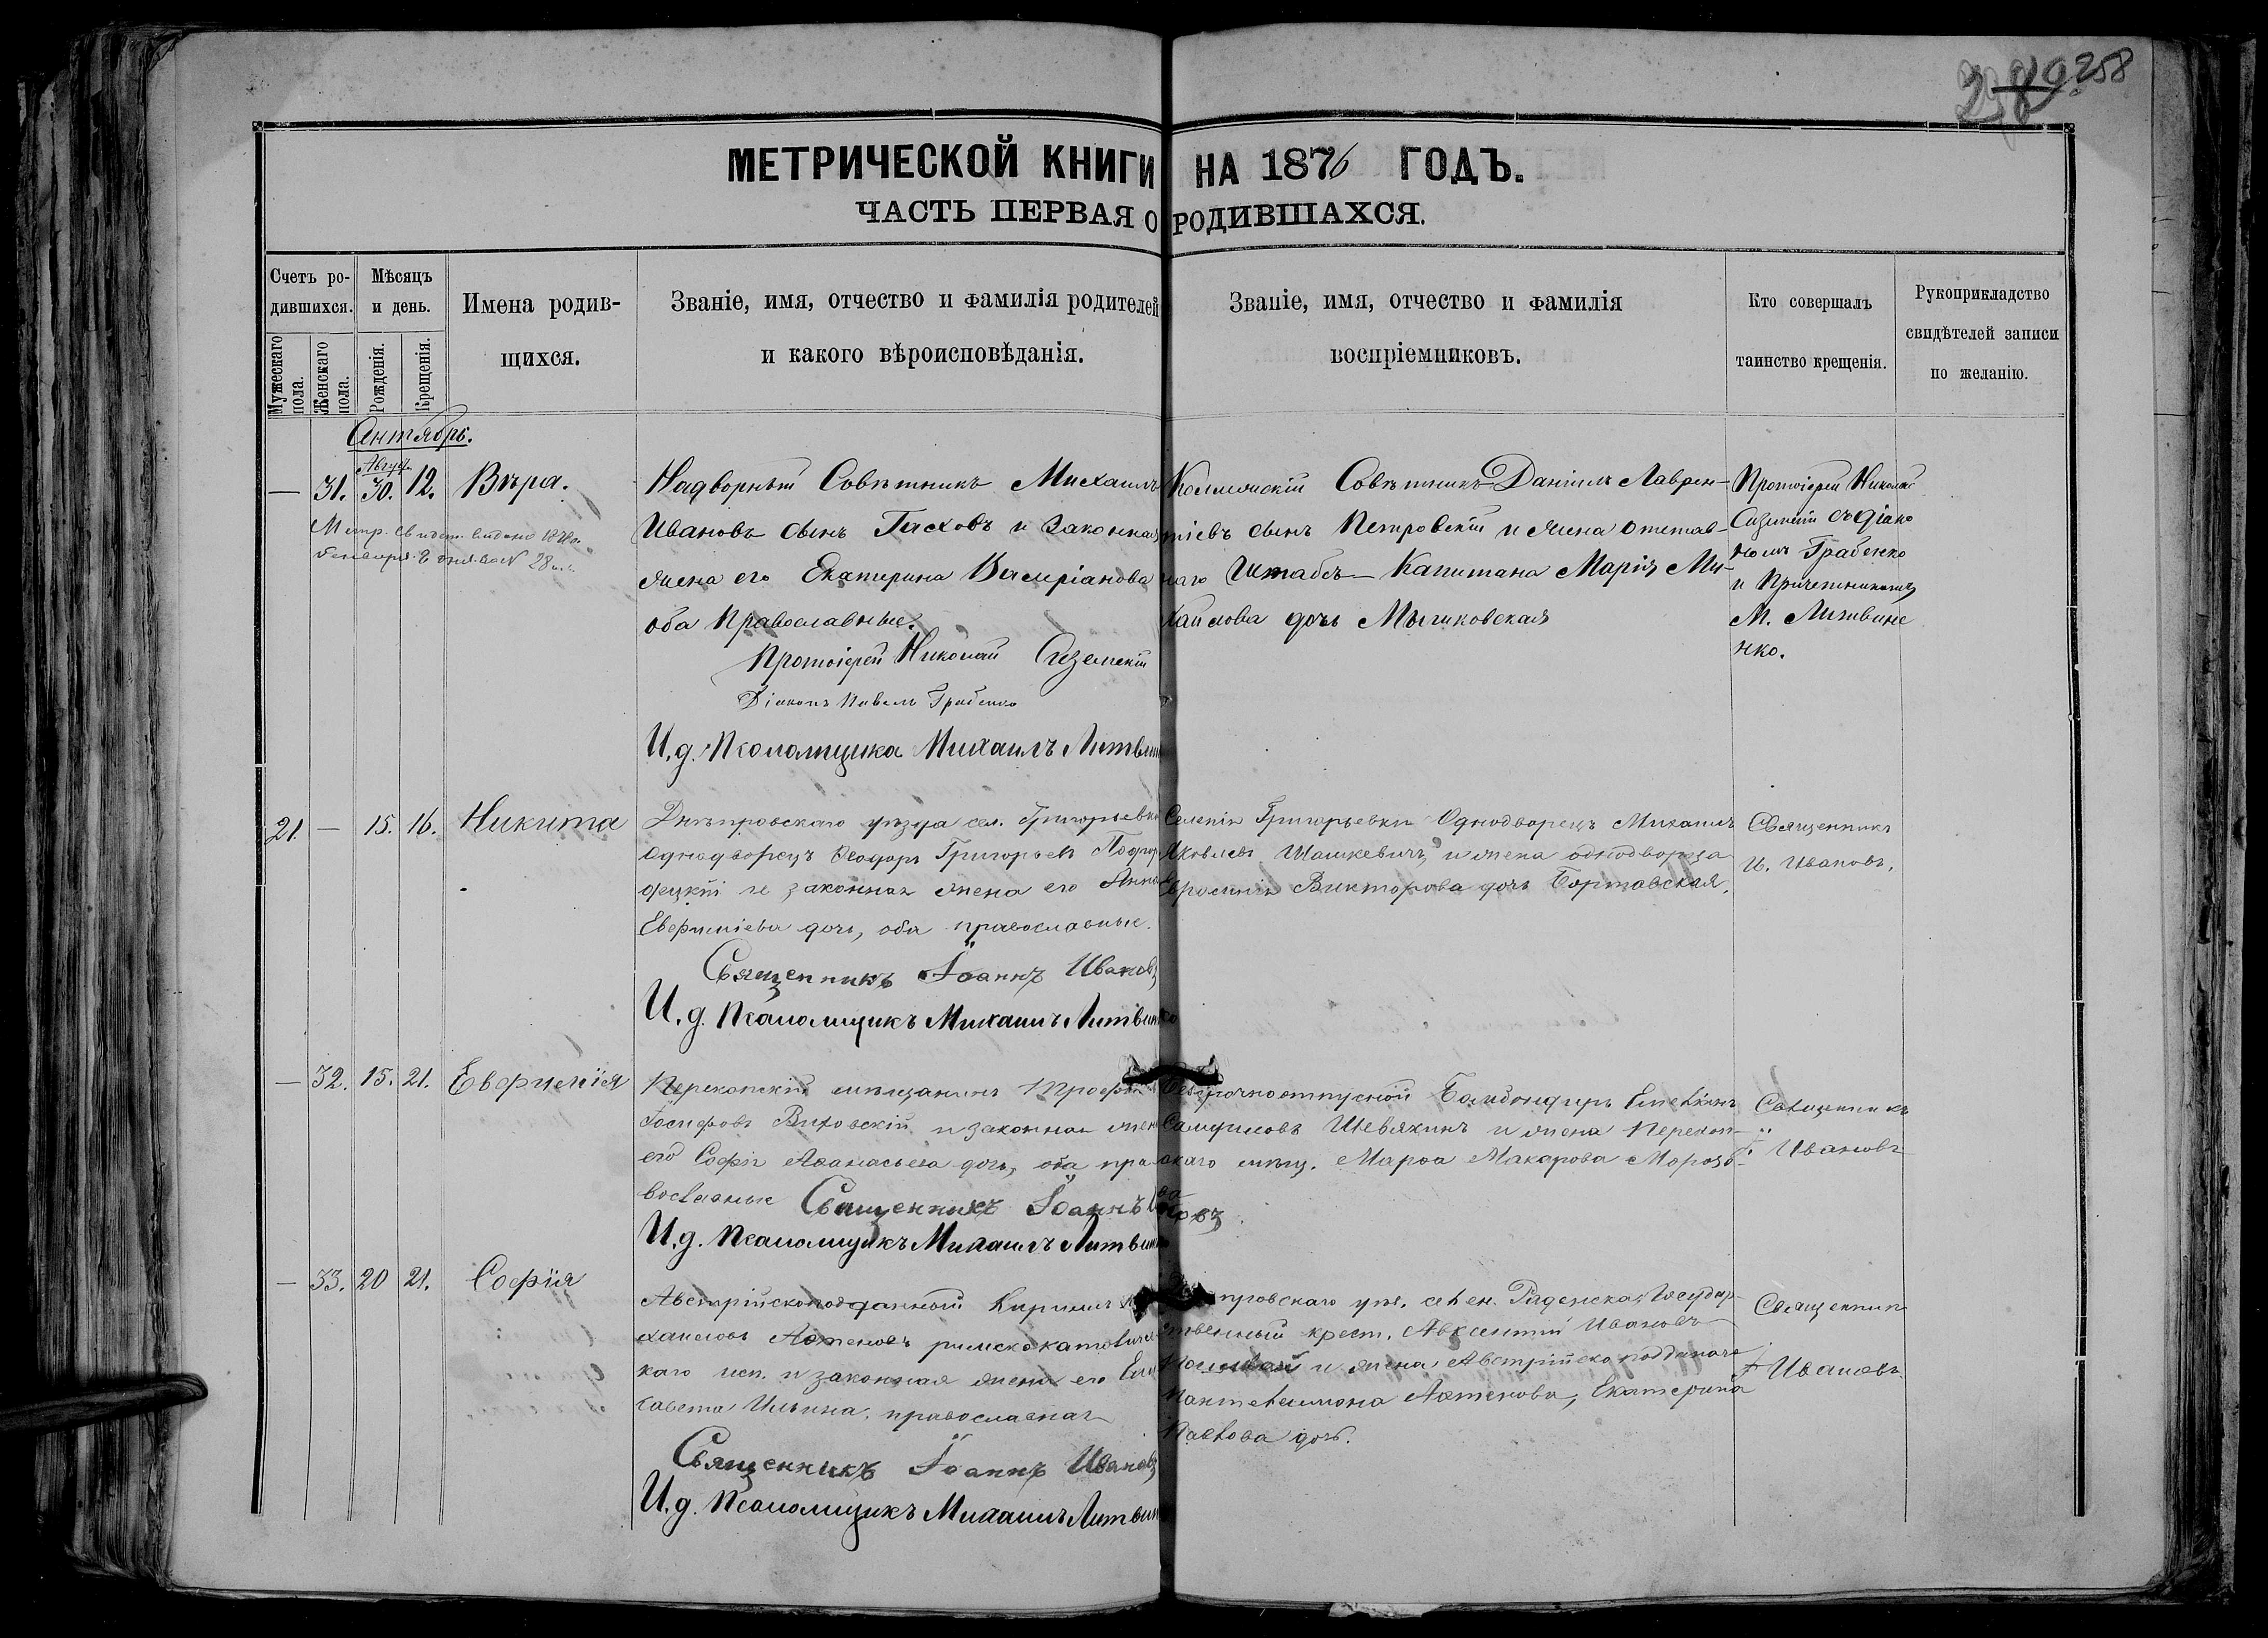 258
МЕТРИЧЕСКОЙ КНИГИ НА 1876 ГОДЪ.
ЧАСТЬ ПЕРВАЯ О РОДИВШАХСЯ.
Счетъ ро-
дившихся.
Мужескаго пола.
Женскаго пола.
Мѣсяцъ
и день.
Рожденія.
Крещенія.
Имена родив-
щихся.
Званіе, имя, отчество и фамилія родителей
и какого вѣроисповѣданія.
Званіе, имя, отчество и фамилія
воспріемниковъ.
Кто совершалъ
таинство крещенія.
Рукоприкладство
свидѣтелей записи
по желанію.
— 31. Август. 30. 12. Вѣра.
Надворный Совѣтникъ Михаилъ
Ивановъ сынъ Гасховъ и законная
жена его Екатерина Валеріанова
оба православные.
Протоіерей Николай Сиземскій
Діаконъ Павелъ Грабенко
И. д. Псаломщика Михаилъ Литвин
Коллежскій Совѣтникъ Даніилъ Лаврен-
тіевъ сынъ Петровскій и жена отстав-
наго Штабсъ-Капитана Марія Ми-
хайлова дочь Мышковская
Протоіерей Николай
Сиземскій съ діако
номъ Грабенко
и Причетникомъ
М. Литвине
нко.
21. — 15. 16. Никита
Днѣпровскаго уѣзда сел. Григорьевки
однодворецъ Ѳеодоръ Григорьев
законная жена его Анна
дочь, оба православные.
Священникъ Іоаннъ Ивановъ
И. д. Псаломщикъ Михаилъ Литвинко
Селенія Григорьевки Однодворецъ Михаилъ
Яковлевъ Шашкевичъ и жена однодворца
Викторова дочь Бортавская.
Священникъ
И. Ивановъ.
— 32. 15. 21. Евфимія
Перекопскій мѣщанинъ Трофим
Іосифовъ Виховскій и законная жен
его Софія Аѳанасьева дочь, оба пра
вославные Священникъ Іоаннъ
И. д. Псаломщикъ Михаилъ Литвин
Самуиловъ Шевякинъ и жена Перекоп-
скаго мѣщ. Марѳа Макарова Морозо-
ва
Священникъ
І. Ивановъ
— 33. 20 21. Софія
Австрійскоподданный Кирилъ
хаиловъ Артемовъ римскокатоличес
каго исп. и законная жена его Ели
савета Ильина, православная
Священникъ Іоаннъ Ивановъ
И. д. Псаломщикъ Михаилъ Литвин
провскаго уѣз. селен. Раденска, Государ-
ственный крест. Авксентій Ивановъ
и жена Австрійскоподданаго
Пантелеимона Артемова, Екатерина
Павлова дочь.
Священник
І. Ивановъ.